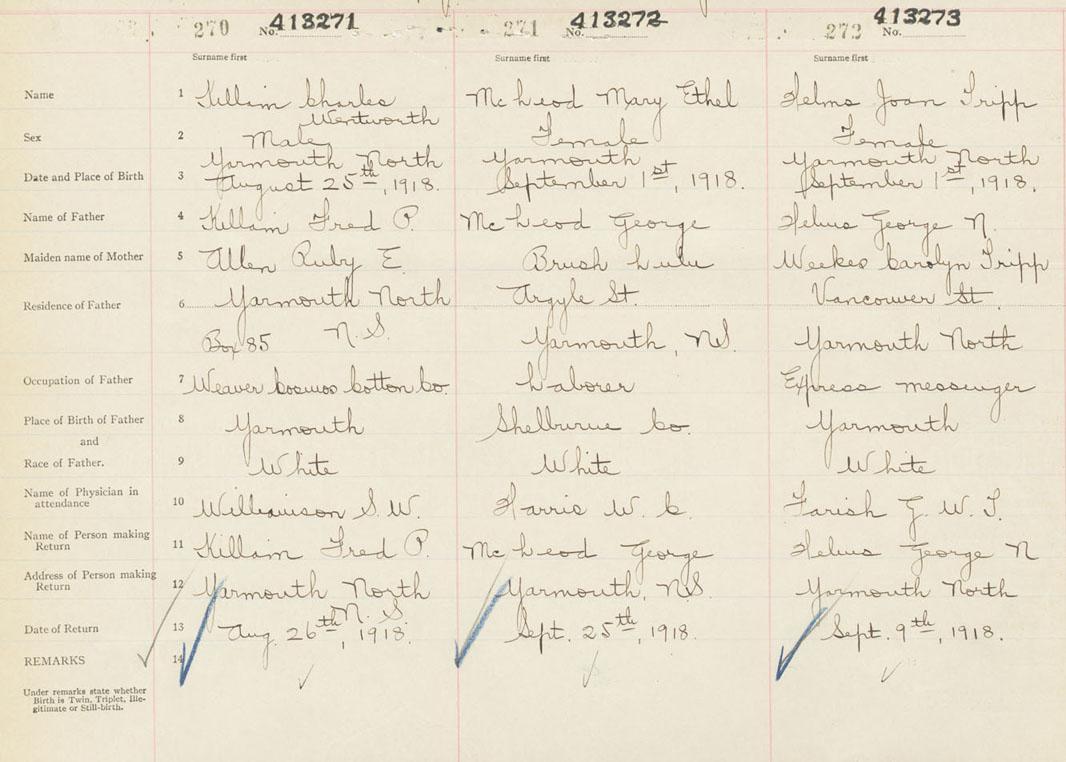 270 No. 413271 271 No. 413272 272 No. 413273
Surname first Surname first Surname first
Name 1 Killam Charles Mc Leod Mary Ethel Helms Joan Tripp
Wentworth
Sex 2 Male Female Female
Yarmouth North Yarmouth Yarmouth North
Date and Place of Birth 3 August 25th, 1918. September 1st, 1918. September 1st, 1918.
Name of Father 4 Killam Fred P. Mc Leod George Helms George N.
Maiden name of Mother 5 Allen Ruby E. Brush Lulu Weekes Carolyn Tripp
Residence of Father 6 Yarmouth North Argyle St. Vancouver St.
Box 85 N.S. Yarmouth, N.S. Yarmouth North
Occupation of Father 7 Weaver Cosmos Cotton Co. Laborer Express messenger
Place of Birth of Father 8 Yarmouth Shelburne Co. Yarmouth
and
Race of Father. 9 White White White
Name of Physician in
attendance 10 Williamson S.W. Harris W. C. Farish G. W. T.
Name of Person making
Return 11 Killam Fred P. Mc Leod George Helms George N
Address of Person making
Return 12 Yarmouth North Yarmouth, N.S. Yarmouth North
N. S.
Date of Return 13 Aug. 26th, 1918. Sept. 25th, 1918. Sept. 9th, 1918.
REMARKS 14
Under remarks state whether
Birth is Twin, Triplet, Ille-
gitimate or Still-birth.